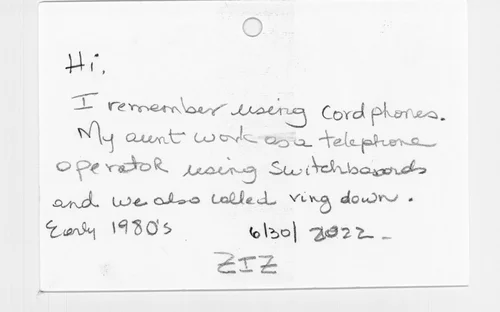 Hi,
I remember using Cordphones.
My aunt work as a telephone
operator using Switchboards
and we also called ring down.
Early 1980's 6/30/2022-
ZIZ